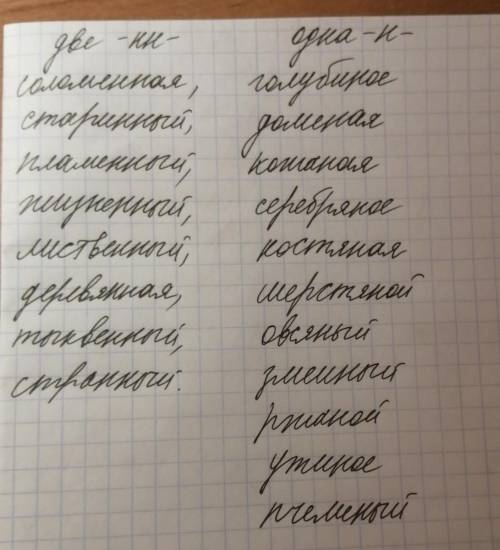 две -нн-
соломенная,
старинный,
пламенный,
жизненный,
лиственный,
деревянная,
тыквенный,
странный.
одна -н-
голубиное
доменая
кожаная
серебряное
костяная
шерстяной
овсяный
змеиный
ржаной
ужиное